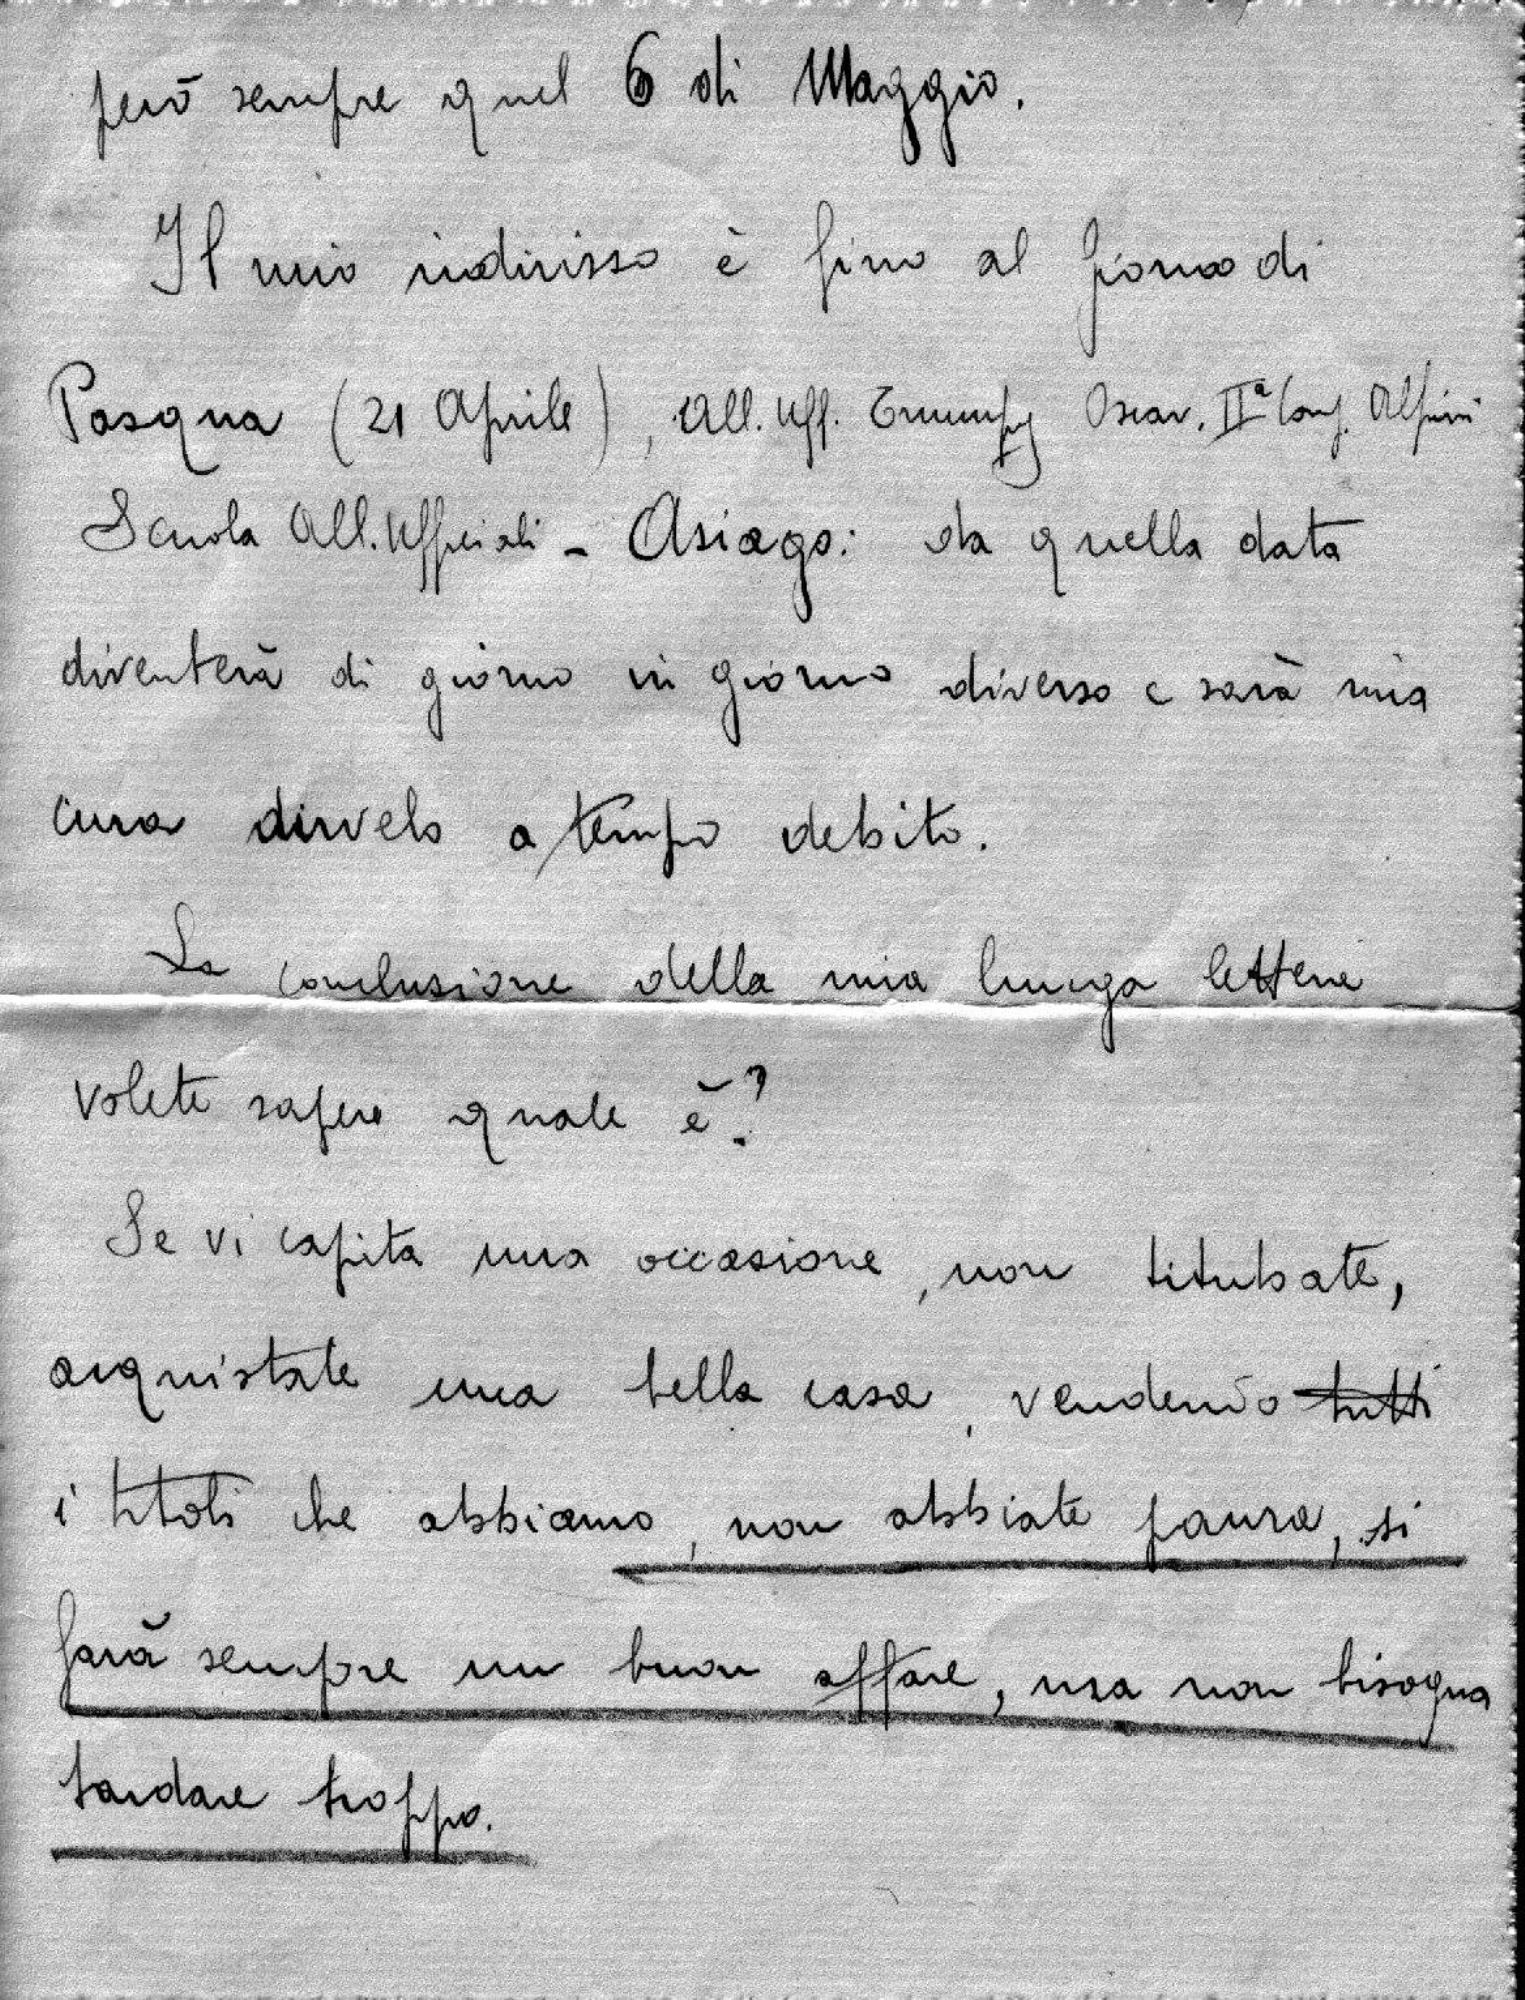 però sempre quel 6 di Maggio.
Il mio indirisso è fino al giorno di
Pasqua (21 Aprile), All. Uff. Oscar. IIª Comp. Alpini
Scuola All. Ufficiali - Asiago: da quella data
diventerà di giorno in giorno diverso e sarà mia
cura dirvelo a tempo debito.
La conclusione della mia lunga lettera
volete sapere quale è?
Se vi capita una occasione, non titubate,
acquistate una bella casa, vendendo tutti
i titoli che abbiamo, non abbiate paura, si
farà sempre un buon affare, ma non bisogna
tardare troppo.